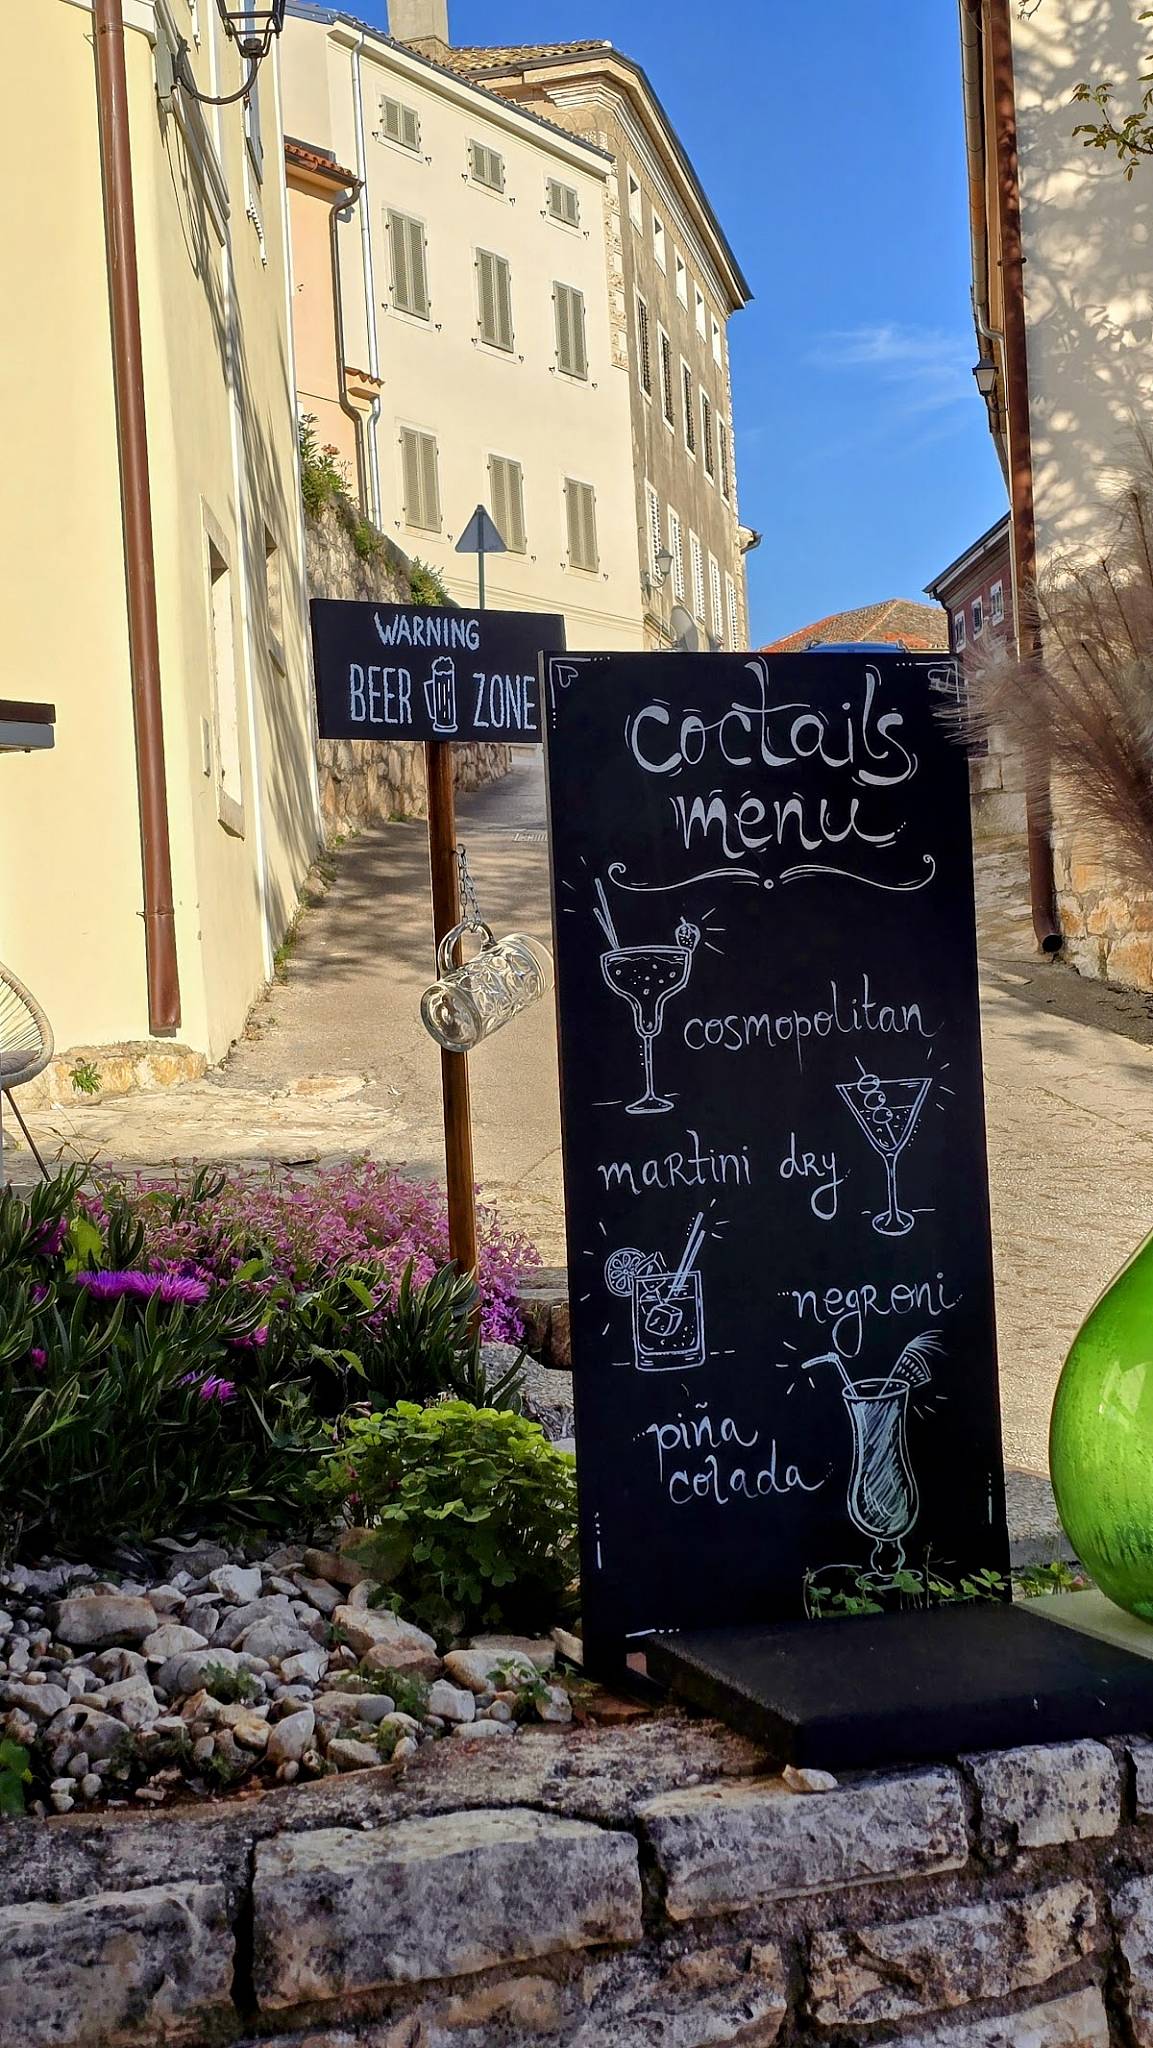 WARNING
BEER ZONE
coctails
menu
cosmopolitan
martini dry
negroni
piña
colada